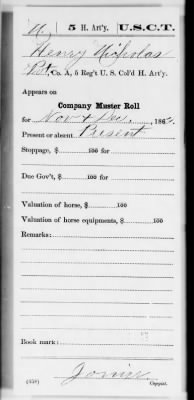 N | 5 H. Art'y. | U.S.C.T.
Henry Nicholas
Pvt, Co. A, 5 Reg't U. S. Col'd H. Art'y.
Appears on
Company Muster Roll
for Nov & Dec, 186
Present or absent Present
Stoppage, $ 100 for
Due Gov't, $ 100 for
Valuation of horse, $ 100
Valuation of horse equipments, $ 100
Remarks:
Book mark:
(358)
Copyist.